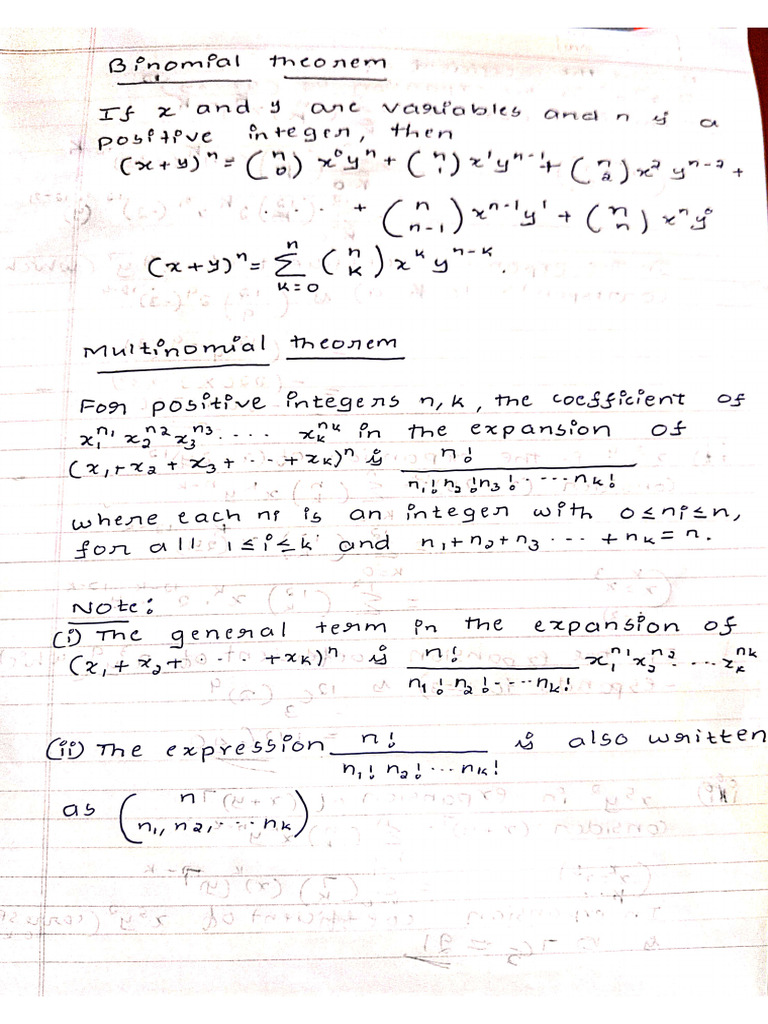 Binomial theorem
If x and y are variables and n is a
positive integer, then
(x+y)ⁿ = (n 0) x⁰yⁿ + (n 1) x¹yⁿ⁻¹ + (n 2) x² yⁿ⁻² +
. . . . + (n n-1) xⁿ⁻¹y¹ + (n n) xⁿy⁰
(x+y)ⁿ = Σ_{k=0}^{n} (n k) x^k y^{n-k}
Multinomial theorem
For positive integers n, k, the coefficient of
x₁^{n₁} x₂^{n₂} x₃^{n₃} .... x_k^{n_k} in the expansion of
(x₁+x₂+x₃+ ... +x_k)ⁿ is n! / n₁! n₂! n₃! ..... n_k!
where each ni is an integer with 0≤ni≤n,
for all 1≤i≤k and n₁+n₂+n₃ ... +n_k = n.
Note:
(i) The general term in the expansion of
(x₁+x₂+ .... +x_k)ⁿ is n! / n₁! n₂! .... n_k! x₁^{n₁} x₂^{n₂} ... x_k^{n_k}
(ii) The expression n! / n₁! n₂! ... n_k! is also written
as (n n₁, n₂, ... n_k)